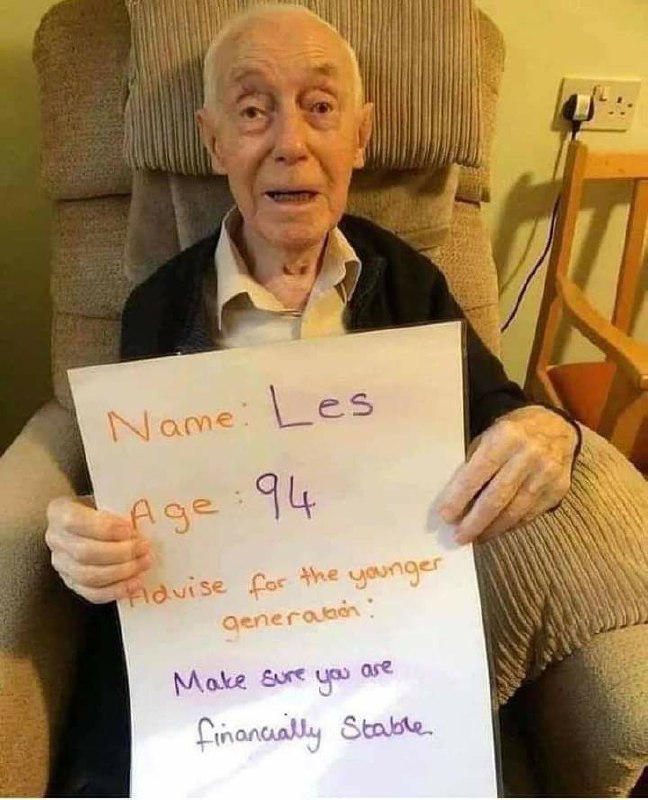 Name: Les
Age: 94
Advise for the younger
generation:
Make sure you are
financially Stable.